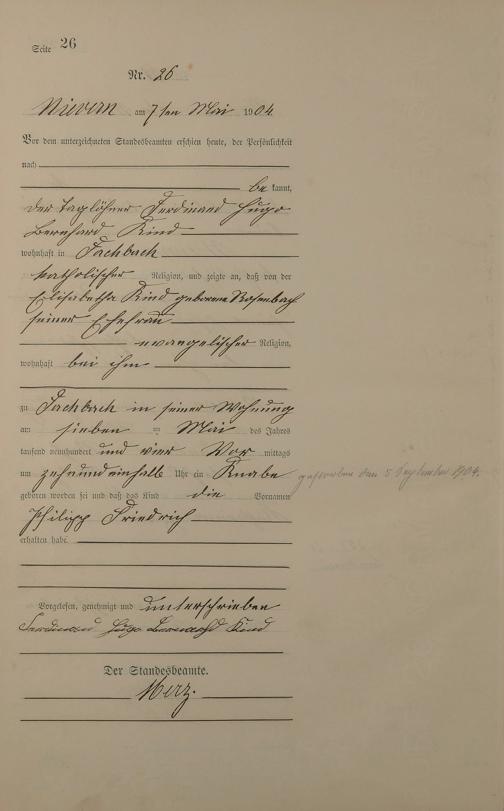 Seite 26
Nr. 26
Nievern am 7ten Mai 1904
Vor dem unterzeichneten Standesbeamten erschien heute, der Persönlichkeit
nach
be kannt,
der Taglöhner Ferdinand Hugo
Bernhard Kind
wohnhaft in Fachbach
katholischer Religion, und zeigte an, daß von der
Elisabetha Kind geborene Rosenbach
seiner Ehefrau
evangelischer Religion,
wohnhaft bei ihm
zu Fachbach in seiner Wohnung
am sieben = Mai des Jahres
tausend neunhundert und vier Vor mittags
um zehneinhalb Uhr ein Knabe gestorben den 5 September 1904.
geboren worden sei und daß das Kind die Vornamen
Philipp Friedrich
erhalten habe
Vorgelesen, genehmigt und unterschrieben
Ferdinand Hugo Bernhard Kind
Der Standesbeamte.
Merz.